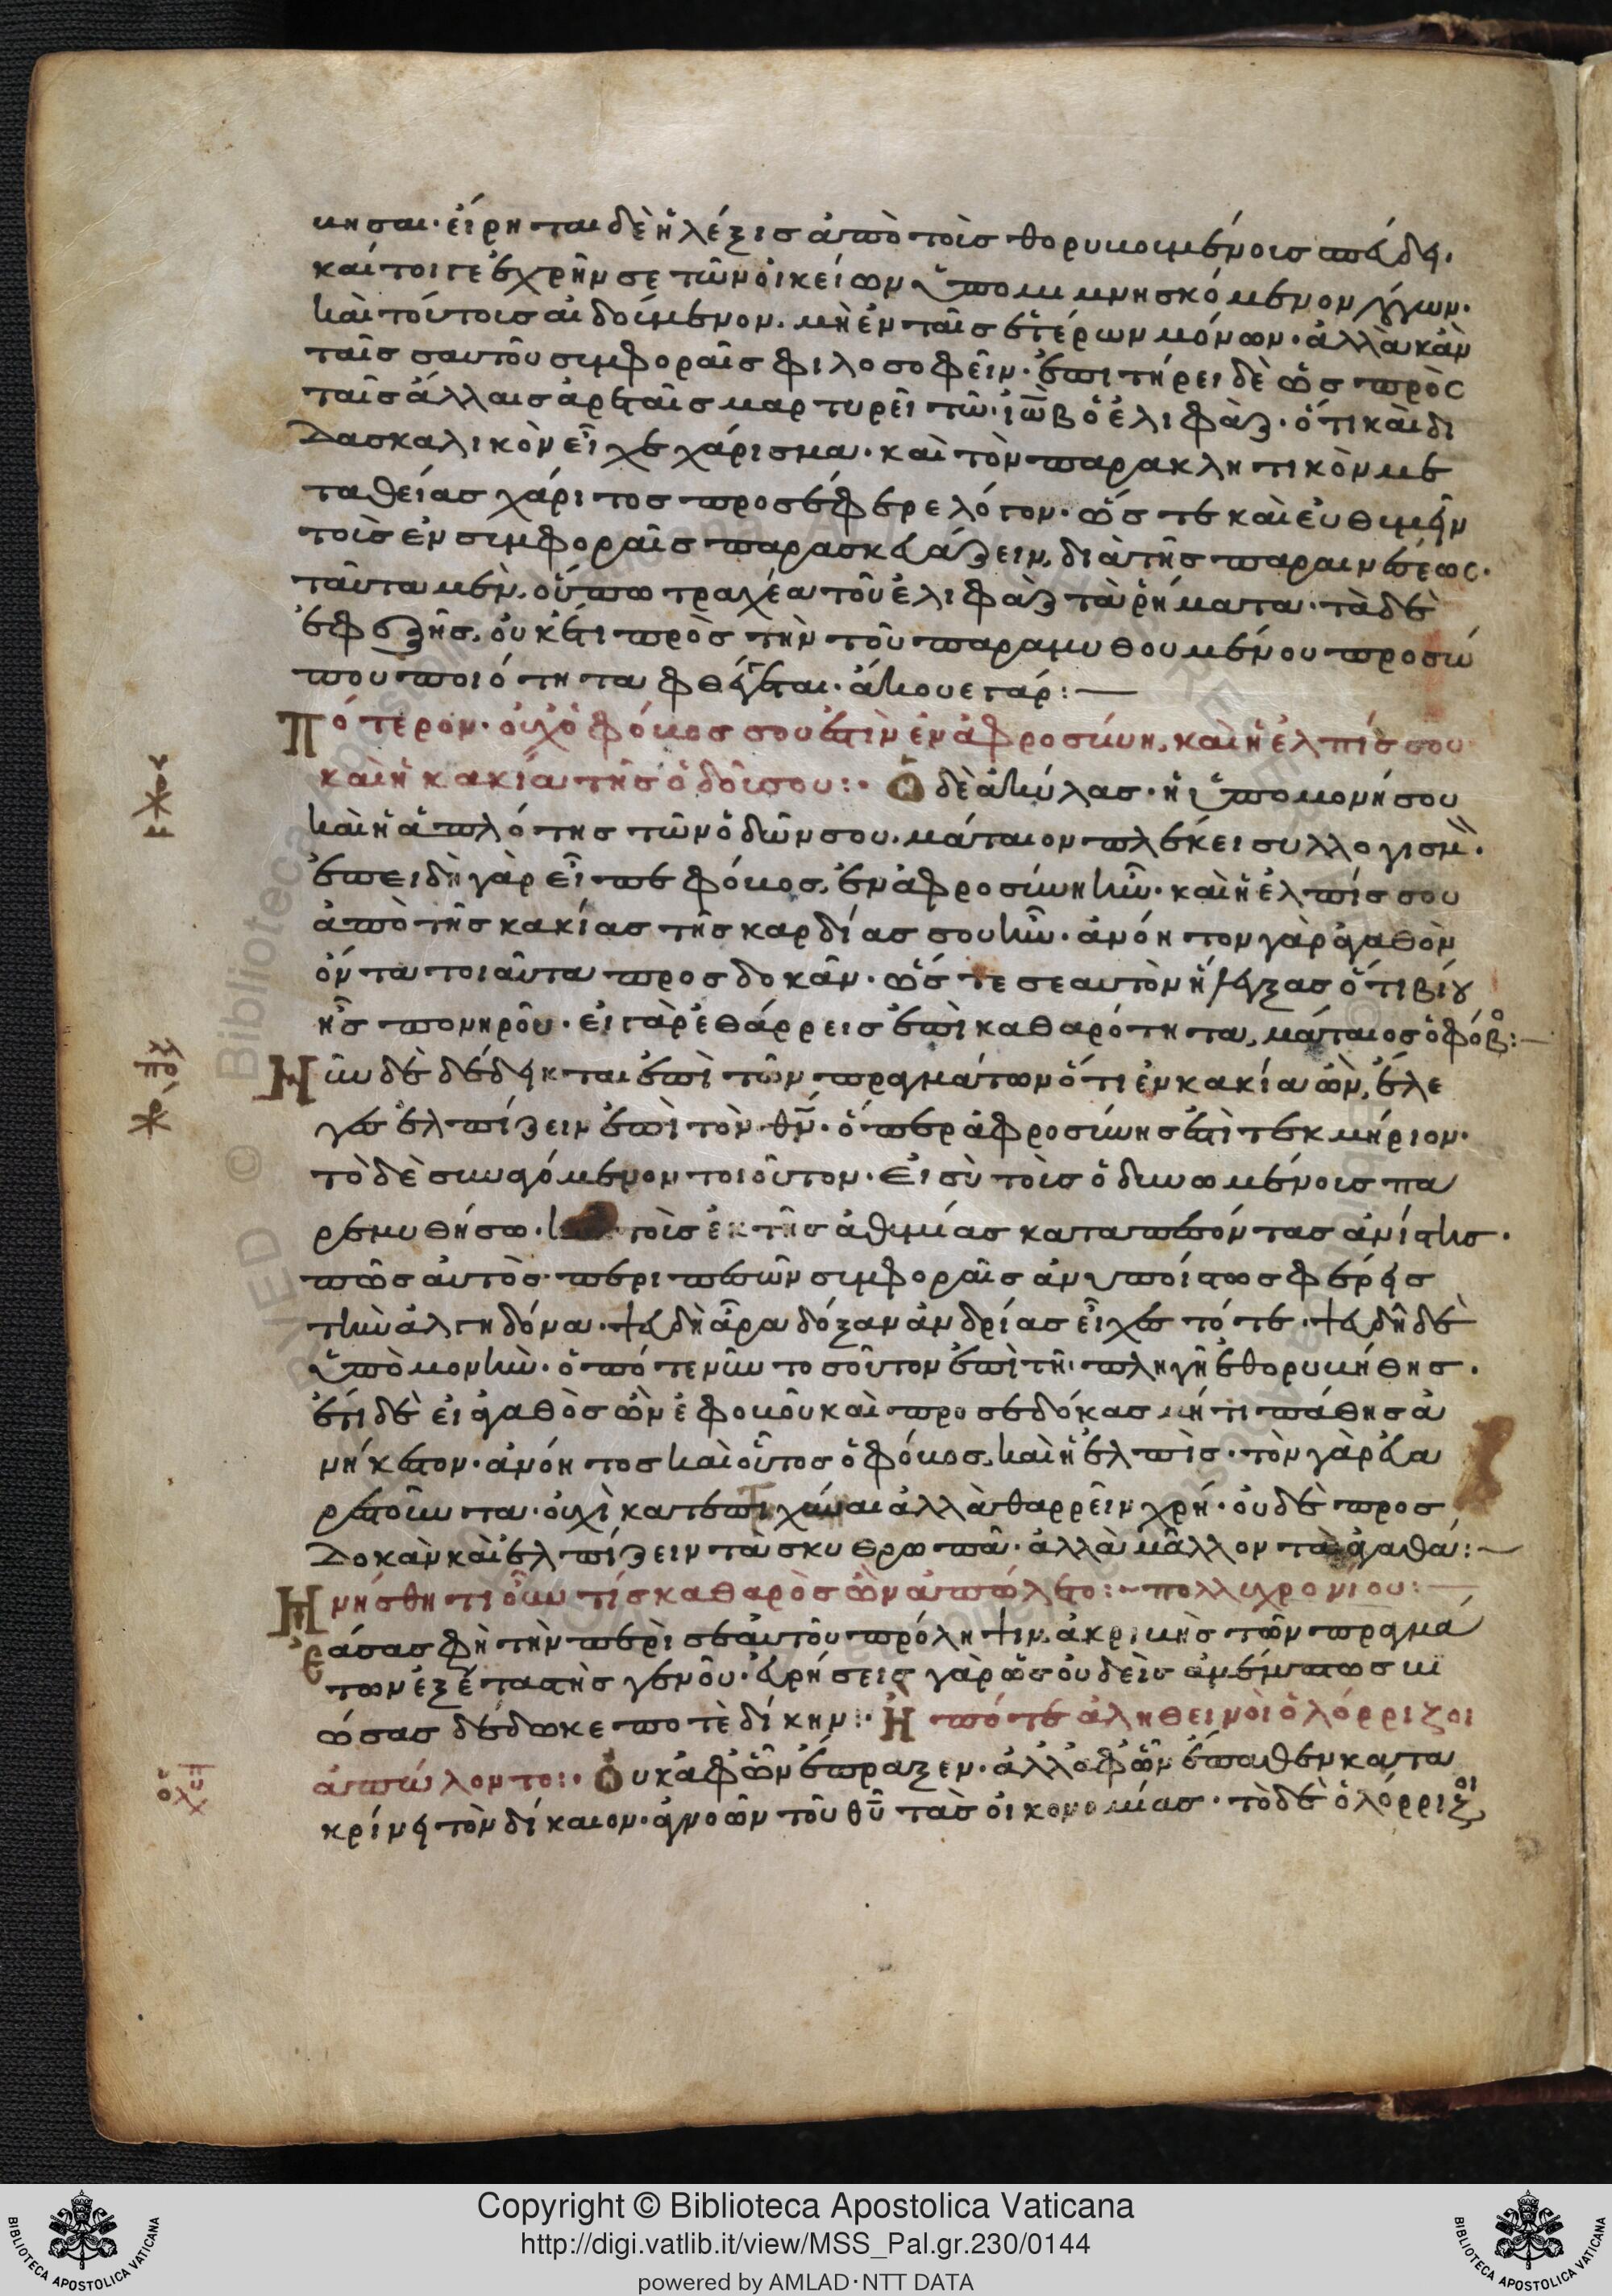 κησαι· εἴρηται δὲ ἡ λέξις ἀπὸ τοῖς θορυβουμένοις παίδων·
καίτοιγε ἐχρῆν σε τῶν οἰκείων ὑπομιμνησκόμενον λόγων·
καὶ τούτοις αἰδούμενον. μὴ ἐν ταῖς ἑτέρων μόνων· ἀλλὰ κἀν
ταῖς σαυτοῦ συμφοραῖς φιλοσοφεῖν· ἐπιτήρει δὲ ὡς πρὸς
ταῖς ἄλλαις ἀρεταῖς μαρτυρεῖ τῷ ἰὼβ ὁ ἐλιφάζ· ὅτι καὶ δι
δασκαλικὸν εἶχε χάρισμα· καὶ τὸν παρακλητικὸν με
τα θείας χάριτος προσέφερε λόγον· ὥστε καὶ εὐθυμεῖν
τοῖς ἐν συμφοραῖς παρασκευάζειν, διὰ τῆς παραινέσεως·
ταῦτα μὲν, οὔπω τραχέα τοῦ ἐλιφὰζ τὰ ῥήματα· τὰ δὲ
ἐφεξῆς, οὐκ ἔτι πρὸς τὴν τοῦ παραμυθουμένου προσώ
που ποιότητα φθέγγεται· ἄκουε γάρ:
Πότερον· οὐχ ὁ φόβος σου ἐστὶν ἐν ἀφροσύνῃ, καὶ ἡ ἐλπίς σου
καὶ ἡ κακία τῆς ὁδοῦ σου: Ὁ δὲ ἀκύλας· ἡ ὑπομονή σου
καὶ ἡ ἁπλότης τῶν ὁδῶν σου. μάταιον πλέκει συλλογισμ·
ἐπειδὴ γὰρ εἶπε φόβος, ἐν ἀφροσύνῃ ἦν· καὶ ἡ ἐλπίς σου
ἀπὸ τῆς κακίας τῆς καρδίας σου ἦν· ἀνόητον γὰρ ἀγαθὸν
ὄντα τοιαῦτα προσδοκᾶν· ὥστε σεαυτὸν ἤλεγξας ὅτι βίου
ἦς πονηροῦ· εἰ γὰρ ἐθάρρεις ἐπὶ καθαρότητα, μάταιος ὁ φόβο:
Νῦν δὲ δέδεικται ἐπὶ τῶν πραγμάτων ὅτι ἐν κακία ὢν, ἔλε
γε ἐλπίζειν ἐπὶ τὸν θν· ὅπερ ἀφροσύνης ἐστὶ τεκμήριον·
τὸ δὲ συναγόμενον τοιοῦτον· Εἰ σὺ τοῖς ὀδυνωμένοις πα
ρεμυθήσω· τοῖς ἐκ τῆς ἀθυμίας καταπεσόντας ἀνίστης·
πῶς αὐτὸς περιπεσὼν συμφοραῖς ἀνυποίστως φέρεις
τὴν ἀλγηδόνα· ψευδῆ ἄρα δόξαν ἀνδρίας εἶχε τότε· ψευδῆ δὲ
ὑπομονήν· ὁπότε νῦν τοσοῦτον ἐπὶ τῇ πληγῇ ἐθορυβήθης·
ἔτι δὲ εἰ ἀγαθὸς ὢν ἐφοβοῦ καὶ προσεδόκας μή τι πάθῃς ἀ
νήκεστον· ἀνόητος καὶ οὗτος ὁ φόβος, καὶ ἡ ἐλπίς· τὸν γὰρ εὐα
ρεστοῦντα· οὐχὶ κατεπτηχέναι ἀλλὰ θαρρεῖν χρή· οὐδὲ προσ
δοκᾶν καὶ ἐλπίζειν τὰ σκυθρωπά· ἀλλὰ μᾶλλον τὰ ἀγαθά:
Μνήσθητι οὖν τίς καθαρὸς ὢν ἀπώλετο: πολυχρονίου:
ἐάσας φὴ τὴν περὶ σεαυτοῦ πρόληψιν, ἀκριβὴς τῶν πραγμά
των ἐξεταστὴς γενοῦ· εὑρήσεις γὰρ ὡς οὐδεὶς ἀμέμπτως βι
ώσας δέδωκε ποτὲ δίκην: Ἢ πότε ἀληθεινοὶ ὁλόρριζοι
ἀπώλοντο: Οὐκ ἀφ' ὧν ἔπραξεν· ἀλλ' ἀφ' ὧν ἔπαθεν κατα
κρίνει τὸν δίκαιον· ἀγνοῶν τοῦ θυ τὰς οἰκονομίας· τὸ δὲ ὁλόρριζοι
Copyright © Biblioteca Apostolica Vaticana
http://digi.vatlib.it/view/MSS_Pal.gr.230/0144
powered by AMLAD·NTT DATA